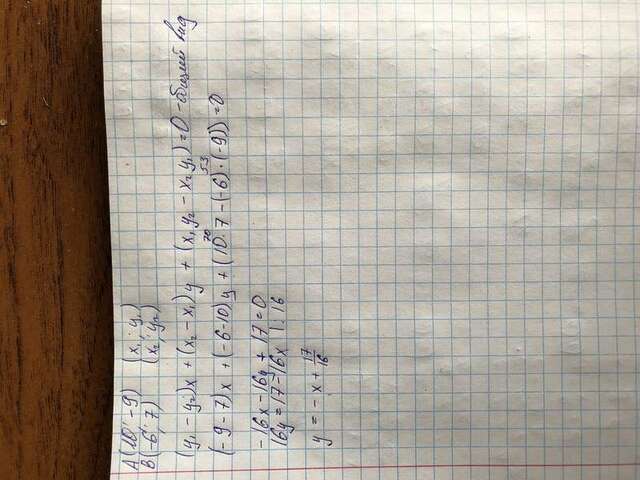 A(10; -9) (x₁; y₁)
B(-6; 7) (x₂; y₂)
(y₁ - y₂)x + (x₂ - x₁)y + (x₁y₂ - x₂y₁) = 0 - общий вид
70 53
(-9-7)x + (-6-10)y + (10·7 - (-6)·(-9)) = 0
-16x - 16y + 17 = 0
16y = 17 - 16x | : 16
y = -x + 17/16